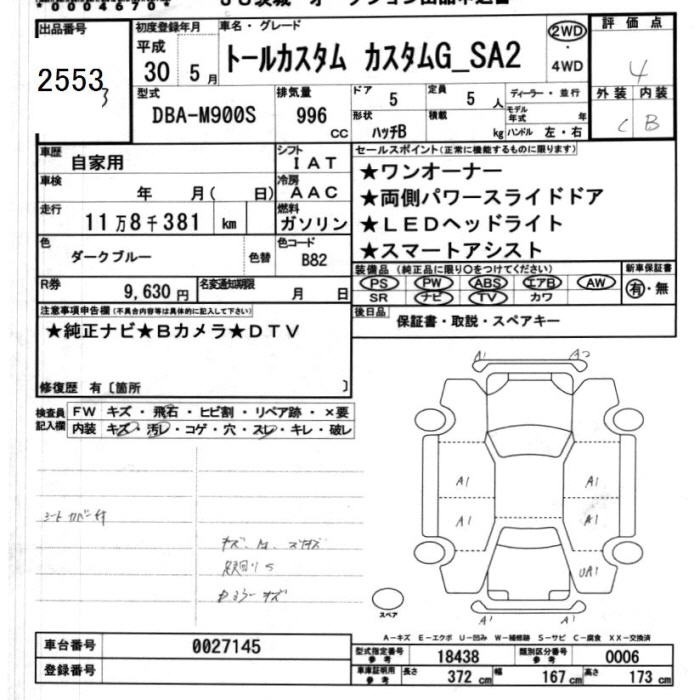 00046704
JU茨城 オークション出品申込書
出品番号 初度登録年月 車名・グレード 2WD・4WD 評価点
2553 平成 30 5月 トールカスタム カスタムG_SA2 4
型式 排気量 ドア 5 定員 5人 ディーラー・並行 外装 内装
DBA-M900S 996 CC 形状 ハッチB 積載 kg モデル年式 年 ハンドル 左・右 C B
3
車歴 自家用 シフト IAT セールスポイント(正常に機能するものに限ります)
車検 年 月( 日) 冷房 AAC ★ワンオーナー
走行 11万8千381 km 燃料 ガソリン ★両側パワースライドドア
★LEDヘッドライト
色 ダークブルー 色替 色コード B82 ★スマートアシスト
R券 9,630円 名変通知期限 月 日 装備品(純正品に限り○をつけてください) 新車保証書
PS PW ABS エアB AW 有・無
SR ナビ TV カワ
注意事項申告欄(不具合内容等は具体的に記入して下さい) 後日品 保証書・取説・スペアキー
★純正ナビ★Bカメラ★DTV
修復歴 有〔箇所 〕
検査員記入欄 FW キズ・飛石・ヒビ割・リペア跡・×要
内装 キズ・汚レ・コゲ・穴・スレ・キレ・破レ
A1 A2
A1 A1
A1 A1
UA1
A1 A1
シートカバー付
足回りS
スペア
A-キズ E-エクボ U-凹み W-補修跡 S-サビ C-腐食 XX-交換済
車台番号 0027145
型式指定番号 参考 18438 類別区分番号 参考 0006
登録番号
車庫証明用 参考 長さ 372 cm 幅 167 cm 高さ 173 cm